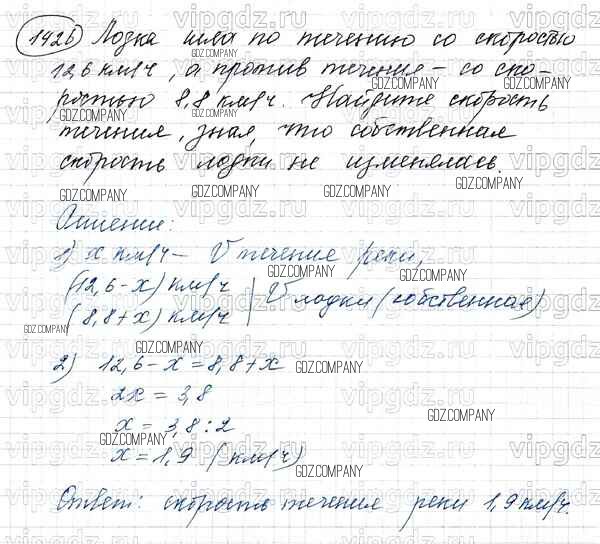 1426 Лодка шла по течению со скоростью
12,6 км/ч, а против течения – со ско-
ростью 8,8 км/ч. Найдите скорость
течения, зная, что собственная
скорость лодки не изменялась.
Решение:
1) x км/ч – V течение реки,
(12,6-x) км/ч
(8,8+x) км/ч | V лодки (собственная)
2) 12,6-x=8,8+x
2x=3,8
x=3,8:2
x=1,9 (км/ч)
Ответ: скорость течения реки 1,9 км/ч.
vipgdz.ru
GDZ.COMPANY